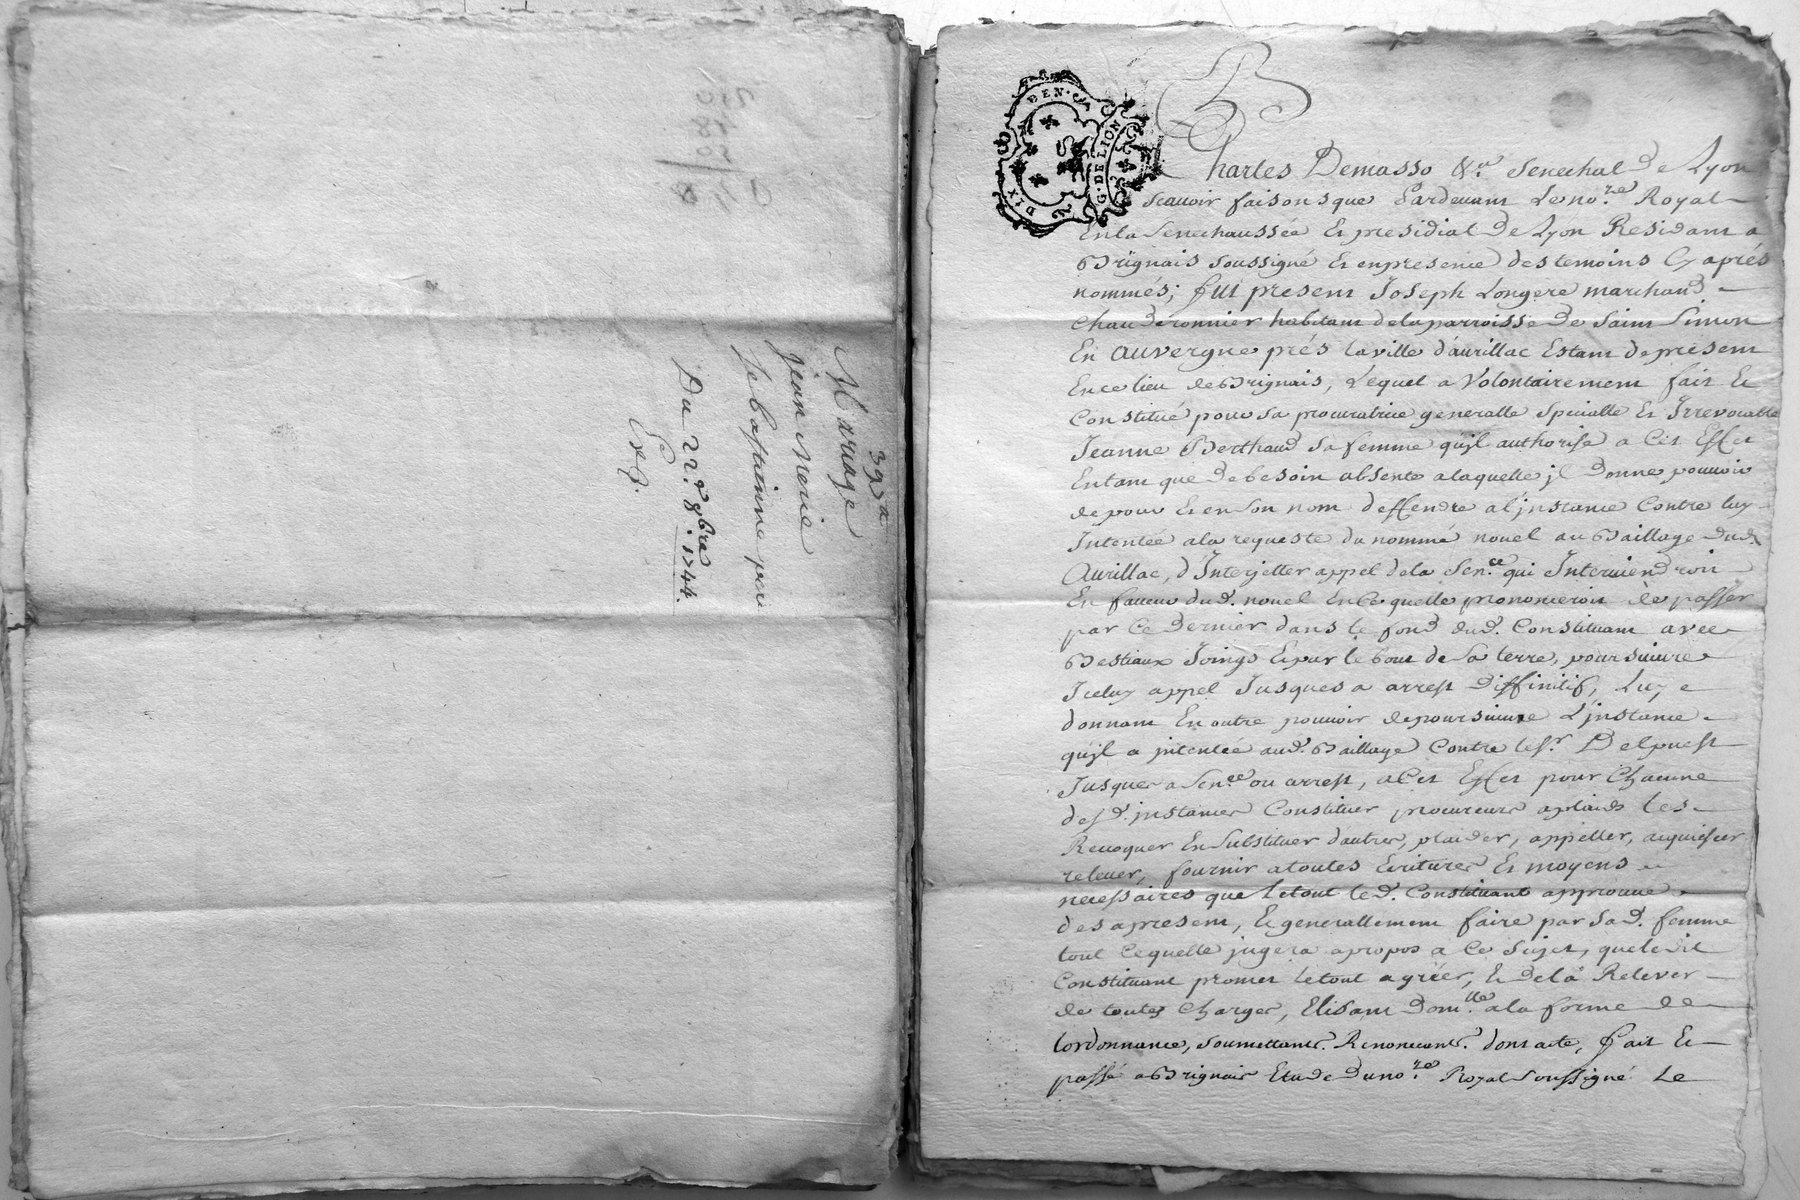 392
Mariage
jean Merie
Sebastiainne
Du 22.e 8bre 1744.
Exp.
DIX DEN.
G. DE LION
Charles Demasso &.a Senechal de Lyon
scauoir faisons que Pardeuant Le no.re Royal
En la Senechaussée Et presidial de Lyon Residant a
Brignais soussigné Et en presence des temoins Cy aprés
nommés; fut present Joseph Longere marchand
chauderonnier habitant de la parroisse de Saint Simon
En auvergne prés la ville d'aurillac Estant de present
En ce lieu de Brignais, Lequel a Volontairement fait Et
Constitué pour sa procuratrice generalle Specialle Et Irrevocable
Jeanne Berthaud sa femme qu'jl authorise a Cet Effet
Entant que de besoin absente a laquelle jl donne pouuoir
de pour Et en son nom deffendre a l'jnstance Contre luy
Intentée a la requeste du nommé nouel au Baillage dud.
Aurillac, d'Interjetter appel de la Sen.ce qui Interuiendroit
En faueur dud. nouel En ce quelle prononceroit de passer
par Ce dernier dans le fond dud. Constituant avec
Bestiaux Joings Et par le bout de Sa terre, poursuiure
Iceluy appel Jusques a arrest Diffinitif, Luy
donnant En outre pouuoir de poursuiure L'jnstance
qu'jl a jntentée aud. Baillage Contre le S.r Delpuest
Jusques a Sen.ce ou arrest, a Cet Effet pour Chacune
desd. jnstances Constituer procureurs aplaids les
Reuoquer En Substituer d'autres, plaider, appeller, acquiescer
releuer, fournir a toutes Ecritures Et moyens
necessaires que le tout led. Constituant approuue
des apresent, Et generallement faire par sad. femme
tout Ce quelle jugera apropos a Ce Sujet, que ledit
Constituant promet le tout agréer, Et de la Relever
de toutes Charges, Elisant Dom.lle a la forme de
lordonnance, soumettant. Renoncant. dont acte, fait Et
passé a Brignais Etude du no.re Royal soussigné Le